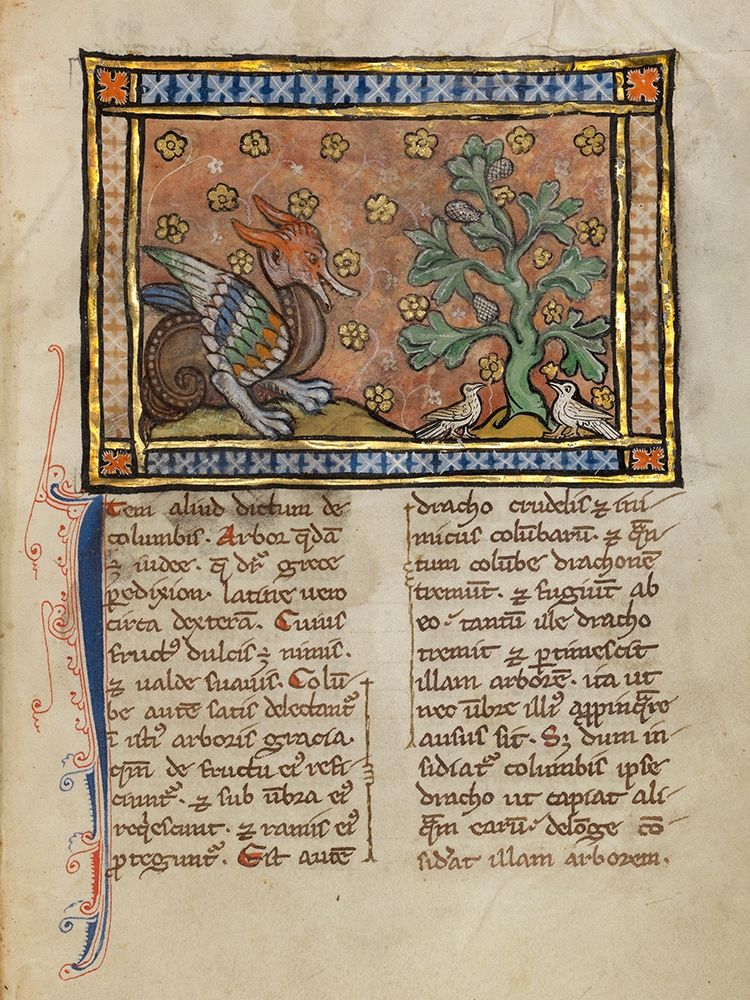 Item aliud dictum de
columbis. Arbor q̄dā
ē indee. q̄ dr̄ grece
ꝑedixion. latine uero
circa dexterā. Cuius
fructꝰ dulcis ē nimis.
⁊ ualde suauis. Colū-
be autē satis delectantᷣ
ī istiꝰ arboris gracia.
qm̄ de fructu eiꝰ refi-
ciuntᷣ. ⁊ sub ūbra eiꝰ
reqͥescunt. ⁊ ramis eiꝰ
ꝓteguntᷣ. Est autē
dracho crudelis ⁊ ini-
micus colūbarū. ⁊ qͣn-
tum colūbe drachonē
tremūt. ⁊ fugiūt ab
eo. tantū ille dracho
tremit ⁊ ꝑtimescit
illam arborē. ita ut
nec ūbre illiꝰ aꝓpinqͣre
ausus sit. Sꝫ dum in-
sidiatᷣ columbis ipse
dracho ut capiat ali-
qͣm earū. delonge cō-
sid̓at illam arborem.